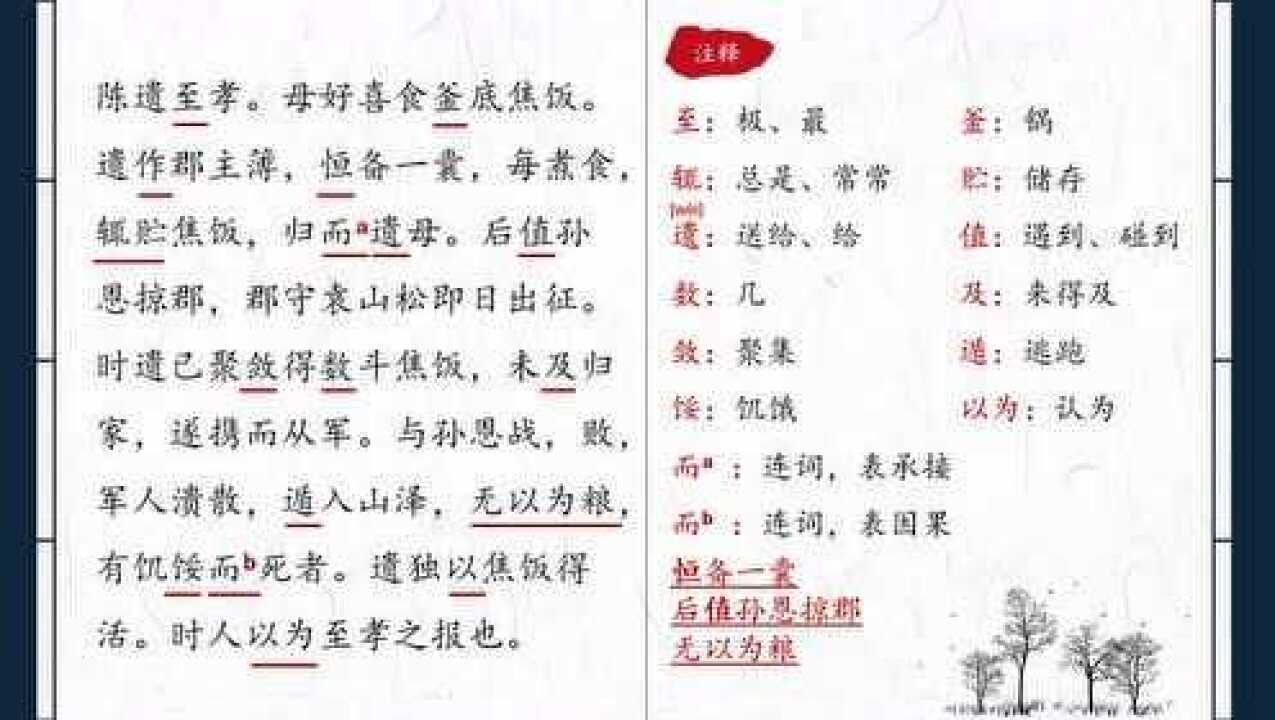 陈遗至孝。母好喜食釜底焦饭。
遗作郡主薄，恒备一囊，每煮食，
辄贮焦饭，归而a遗母。后值孙
恩掠郡，郡守袁山松即日出征。
时遗已聚敛得数斗焦饭，未及归
家，遂携而从军。与孙恩战，败，
军人溃散，遁入山泽，无以为粮，
有饥馁而b死者。遗独以焦饭得
活。时人以为至孝之报也。
注释
至：极、最 釜：锅
辄：总是、常常 贮：储存
遗：送给、给 值：遇到、碰到
数：几 及：来得及
敛：聚集 遁：逃跑
馁：饥饿 以为：认为
而a：连词，表承接
而b：连词，表因果
恒备一囊
后值孙恩掠郡
无以为粮